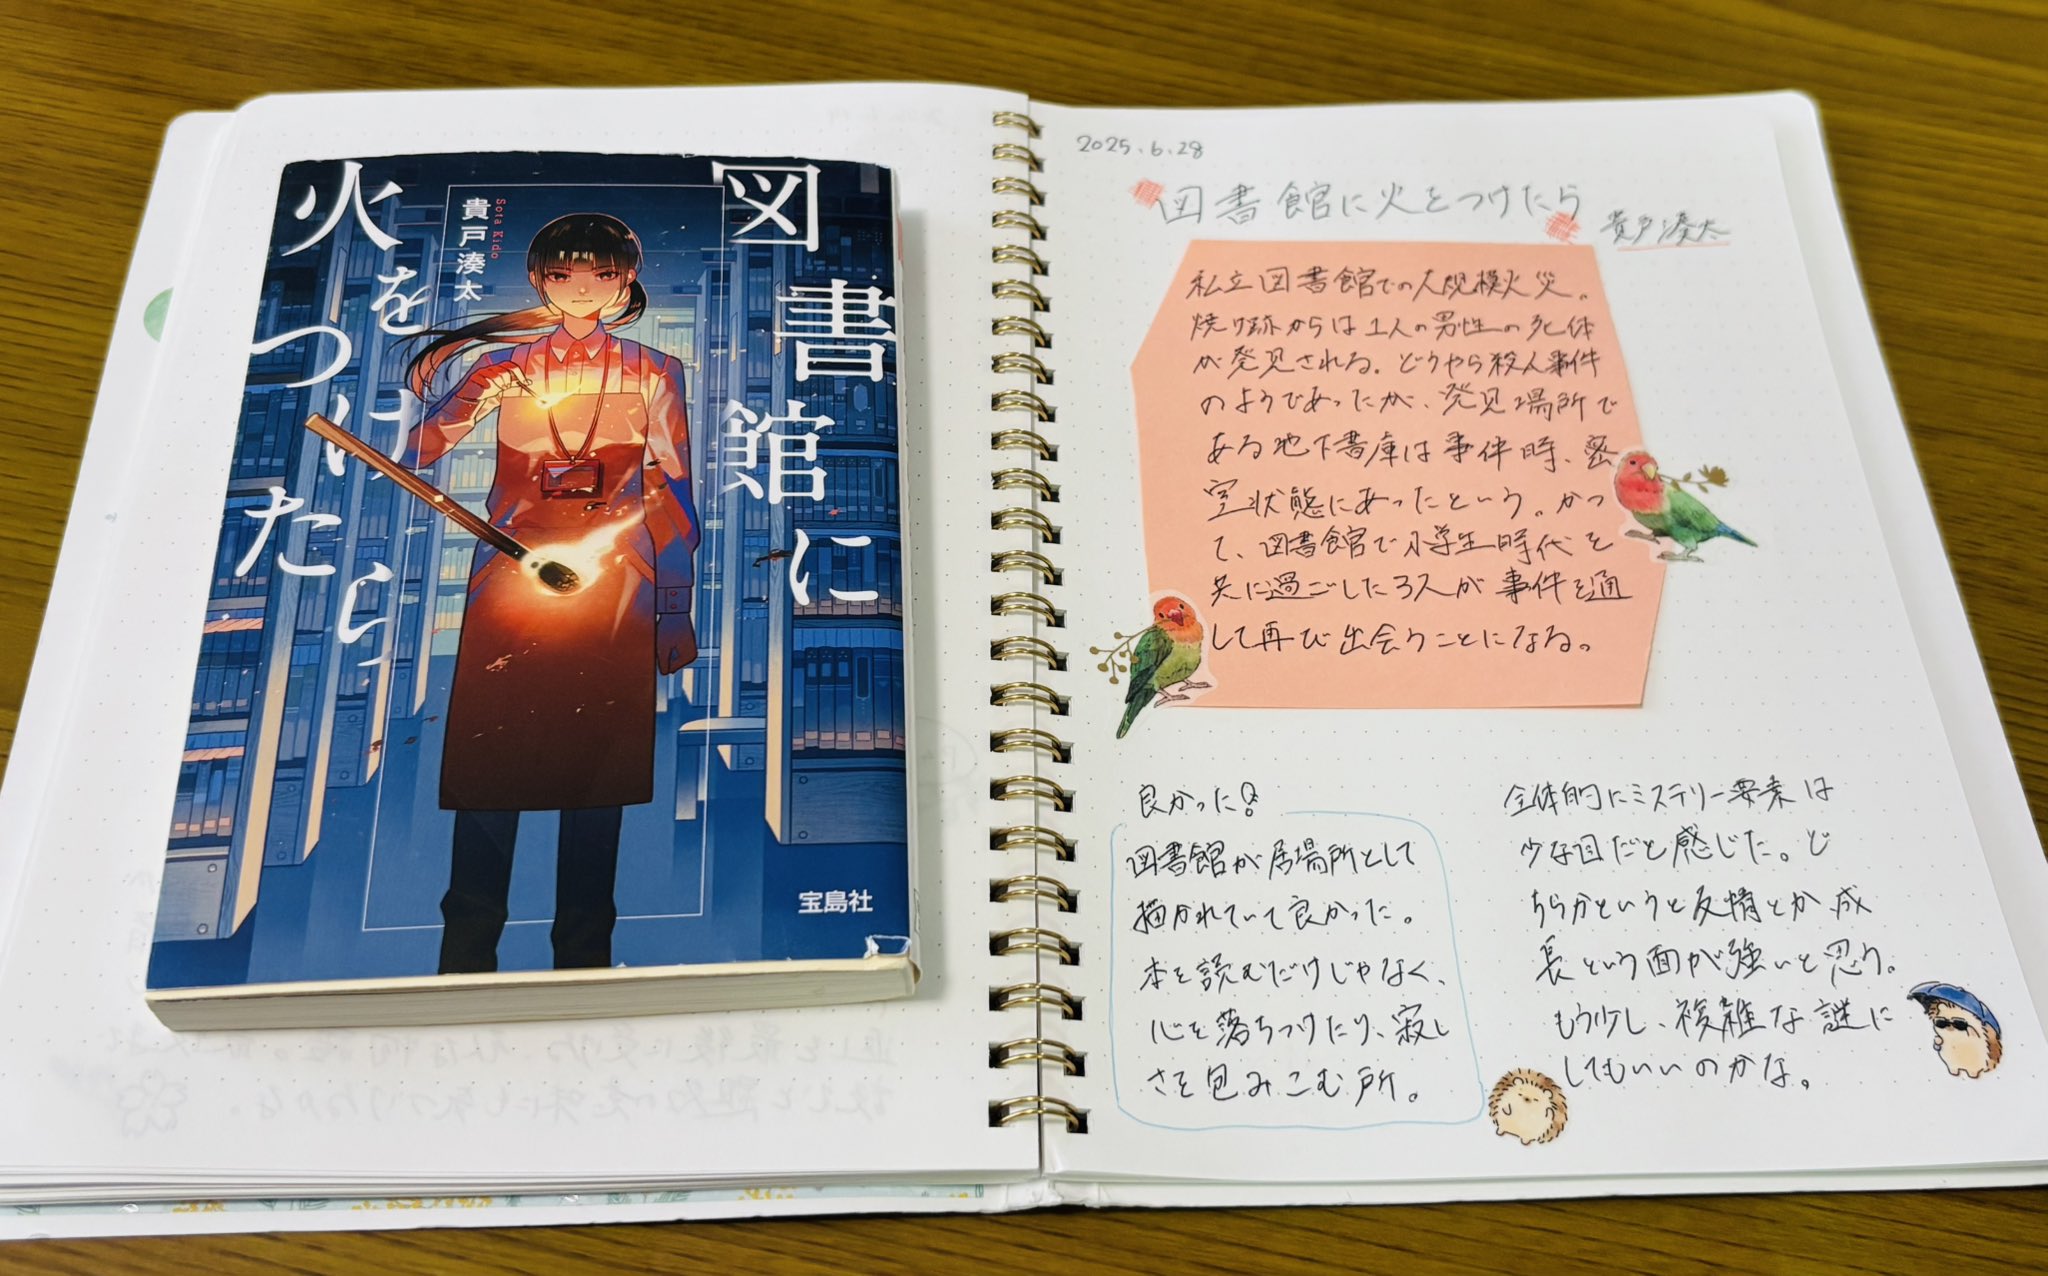 図書館に
火をつけたら
貴戸湊太
Sota Kido
宝島社
2025.6.28
図書館に火をつけたら
貴戸湊太
私立図書館での大規模火災。
焼け跡からは1人の男性の死体
が発見される。どうやら殺人事件
のようであったが、発見場所で
ある地下書庫は事件時、密
室状態にあったという。かつ
て、図書館で小学生時代を
共に過ごした3人が事件を通
して再び出会うことになる。
良かった!
図書館が居場所として
描かれていて良かった。
本を読むだけじゃなく、
心を落ちつけたり、寂し
さを包みこむ所。
全体的にミステリー要素は
少な目だと感じた。ど
ちらかというと友情とか成
長という面が強いと思う。
もう少し、複雑な謎に
してもいいのかな。